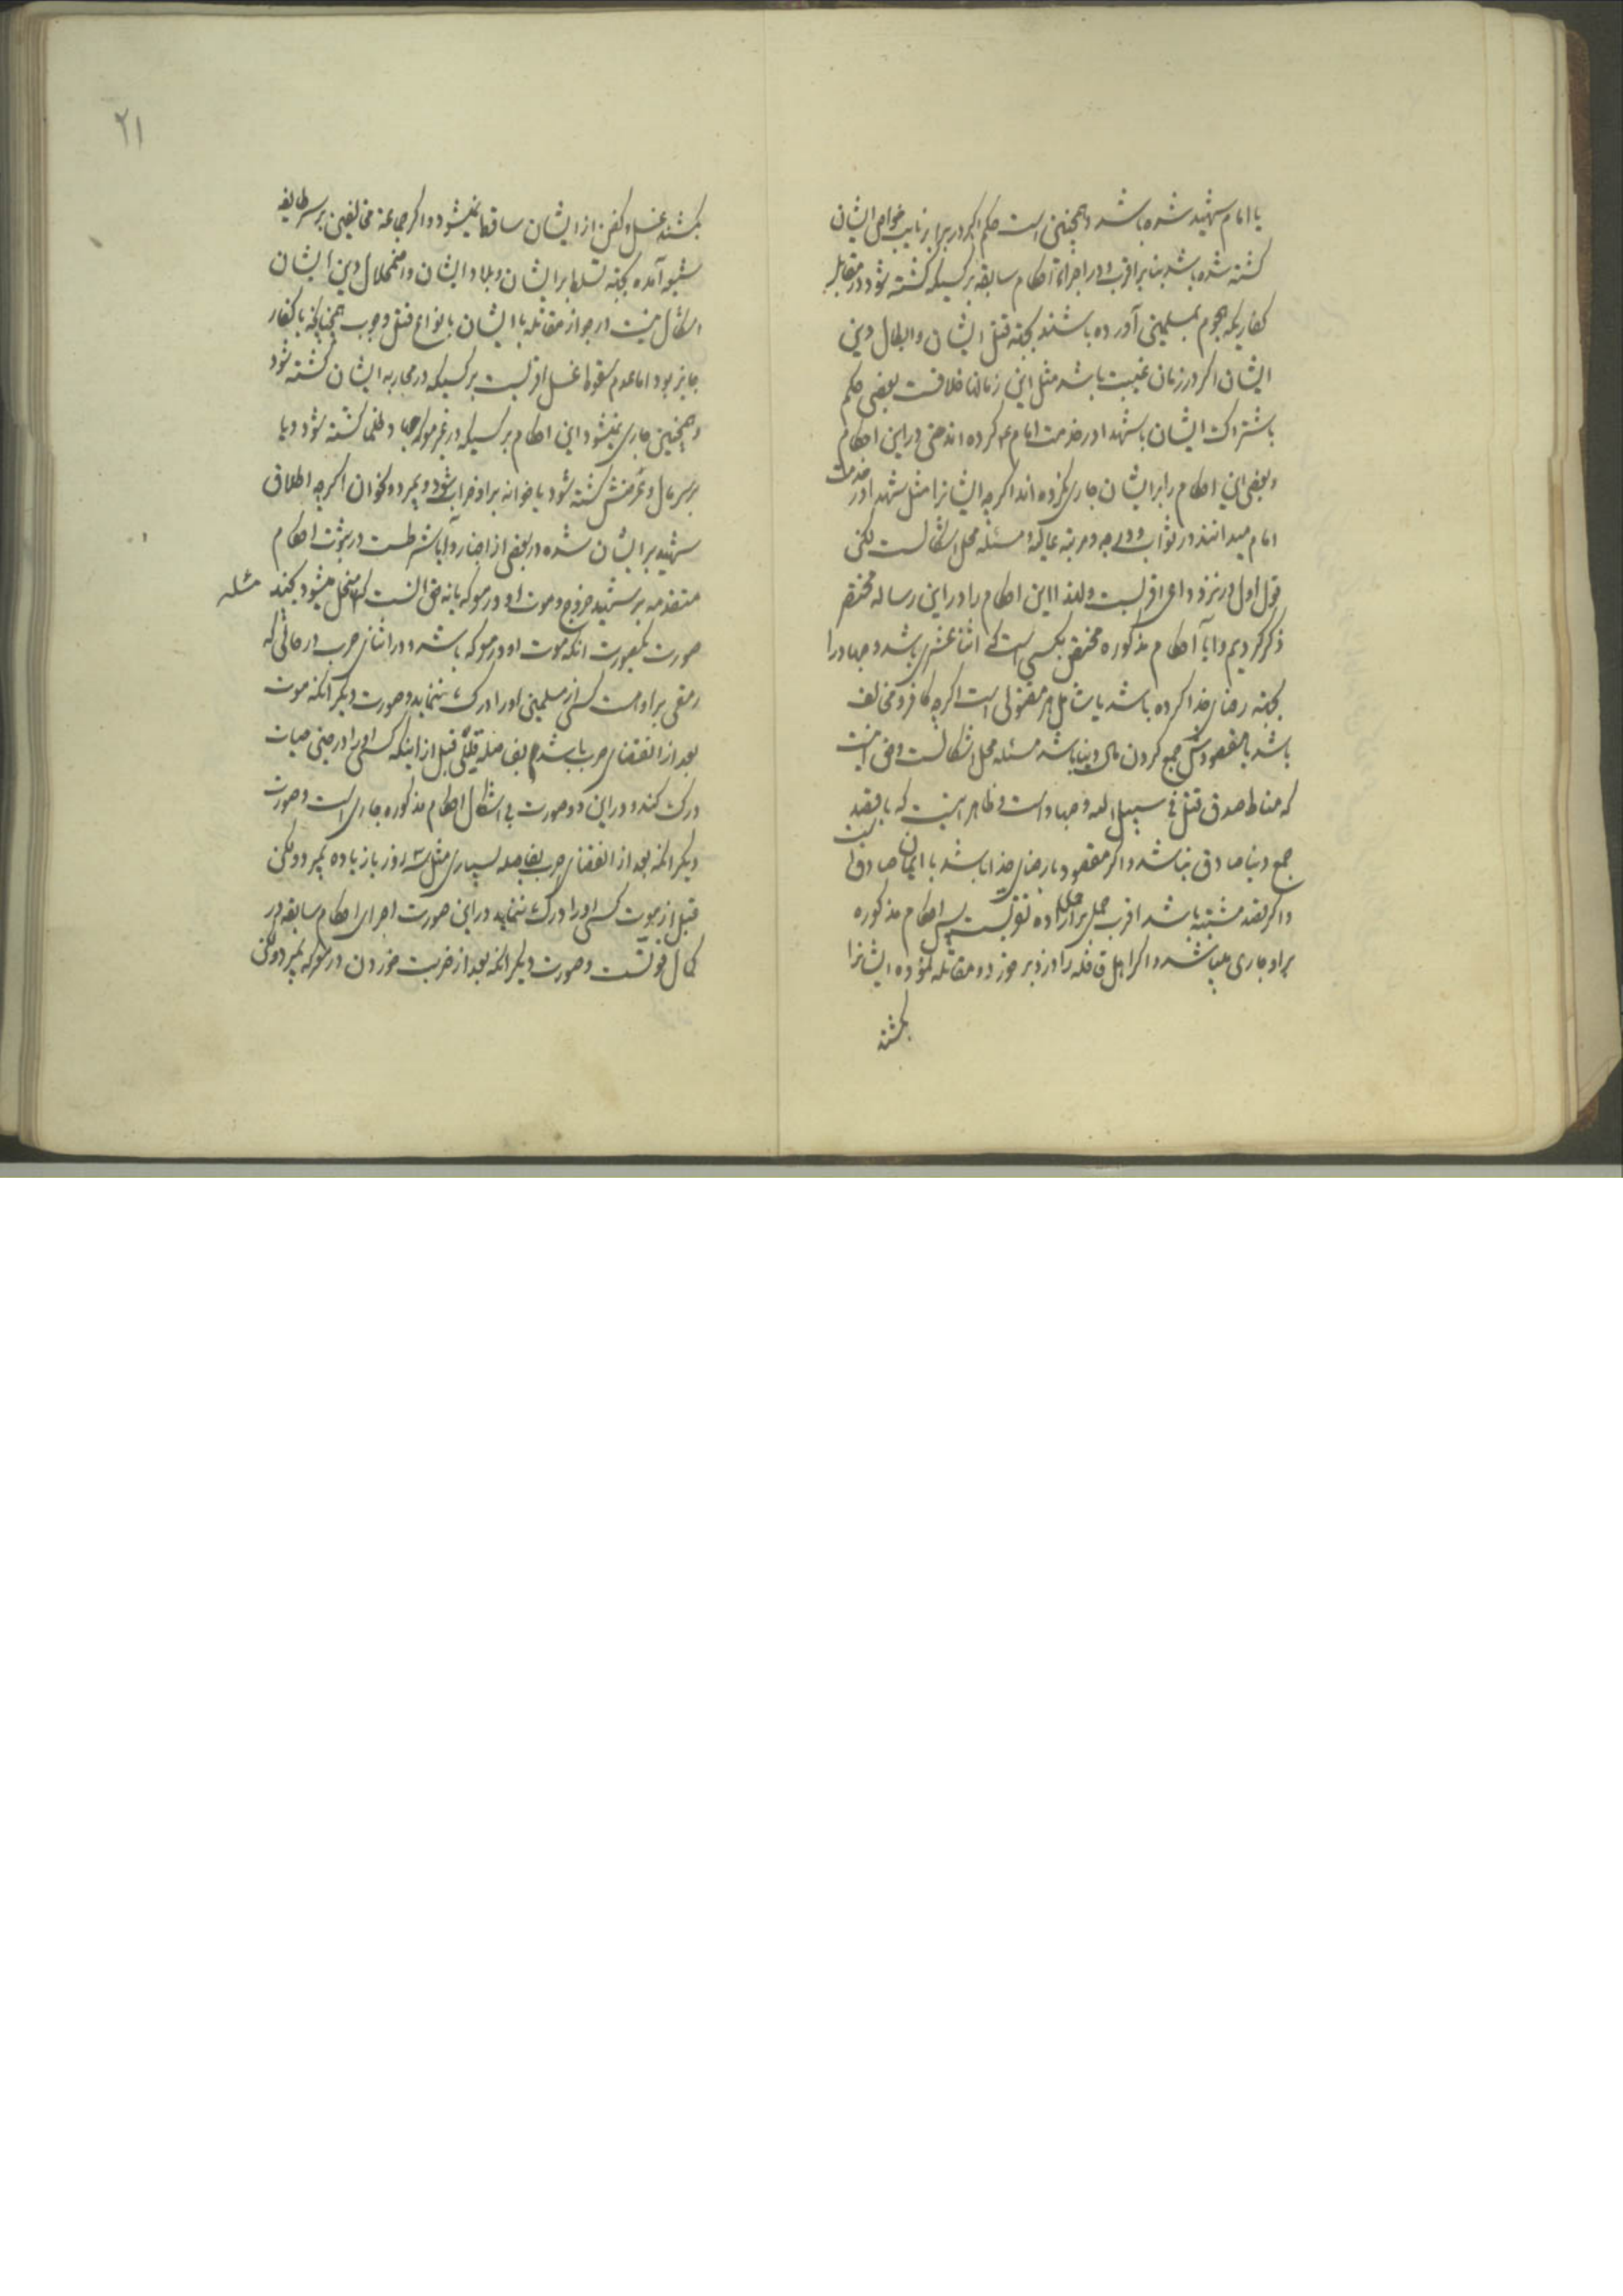 یا امام شهید شده باشد و همچنین است حکم اگر در برابر نایب خواص ایشان
کشته شده باشد بنا بر اقرب و در اجراء احکام سابقه بر کسیکه کشته شود در مقابله
کفاریکه هجوم بمسلمین آورده باشند بجهة قتل ایشان و ابطال دین
ایشان اکر در زمان غیبت باشد مثل این زمان خلافست بعضی حکم
باشتراک ایشان با شهدا در خدمت امام ع کرده اند حتی در این احکام
و بعضی این احکام را بر ایشان جاری نکرده اند اکرچه ایشانرا مثل شهدا در خدمت
امام میدانند در ثواب و درجه و مرتبه مسئله محل اشکالست لکن
قول اول در نزد داعی اقربست و لهذا این احکام را در این رساله مختصر
ذکر کردیم و آیا احکام مذکوره مختص بکسی است که اثنا عشری باشد و جهاد را
بجهة رضای خدا کرده باشد یا شامل هر مقتولی است اکرچه کافر و مخالف
باشد یا مقصودش جمع کردن مال دنیا باشد مسئله محل اشکالست و حق اینست
که مناط صدق قتل فی سبیل الله و جهاد است و ظاهر اینست که با قصد
جمع دنیا صادق نباشد و اکر مقصود رضای خدا باشد با ایمان صادق است
و اکر قصد مشتبه باشد اقرب حمل بر اراده پس احکام مذکوره
بر او جاری میباشد و اکر اهل قافله را دزد بر خورد و مقاتله نموده ایشانرا
بکشند
۲۱
بکشند غسل و کفن از ایشان ساقط نمیشود و اکر جماعة مخالفین بر سر طایفه
شیعه آمده بجهة تسلط بر ایشان و بلاد ایشان و اضمحلال دین ایشان
اشکال نیست در جواز مقاتله با ایشان بانواع قتل و حرب همچنانکه با کفار
جایز بود اما عدم سقوط غسل اقربست بر کسیکه در محاربه ایشان کشته شود
و همچنین جاری نمیشود این احکام بر کسیکه در غیر معرکه جهاد ظلما کشته شود و یا
بر سر مال و عرضش کشته شود یا خانه بر او خراب شود و بمیرد و نحو ان اکرچه اطلاق
شهید بر ایشان شده در بعضی از اخبار و آیا شرطست در ثبوت احکام
متقدمه بر شهید خروج و موت او در معرکه یا نه حق انست که منحل میشود بچند مسئله
صورت یکصورت انکه موت او در معرکه باشد و در اثنای حرب در حالتی که
رمقی بر او هست کسی از مسلمین او را درک ننماید و صورت دیکر آنکه موت
بعد از انقضای حرب باشد بفاصله قبل از اینکه کسی او را در حین حیات
درک کند و در این دو صورت بی اشکال احکام مذکوره جاری است و صورت
دیکر انکه بعد از انقضای حرب بفاصله بسیاری مثل ۳ روز یا زیاده بمیرد و لکن
قبل از موت کسی او را درک ننماید در این صورت اجرای احکام سابقه در
کمال قوتست و صورت دیکر انکه بعد از ضربت خوردن در معرکه بمیرد و لکن